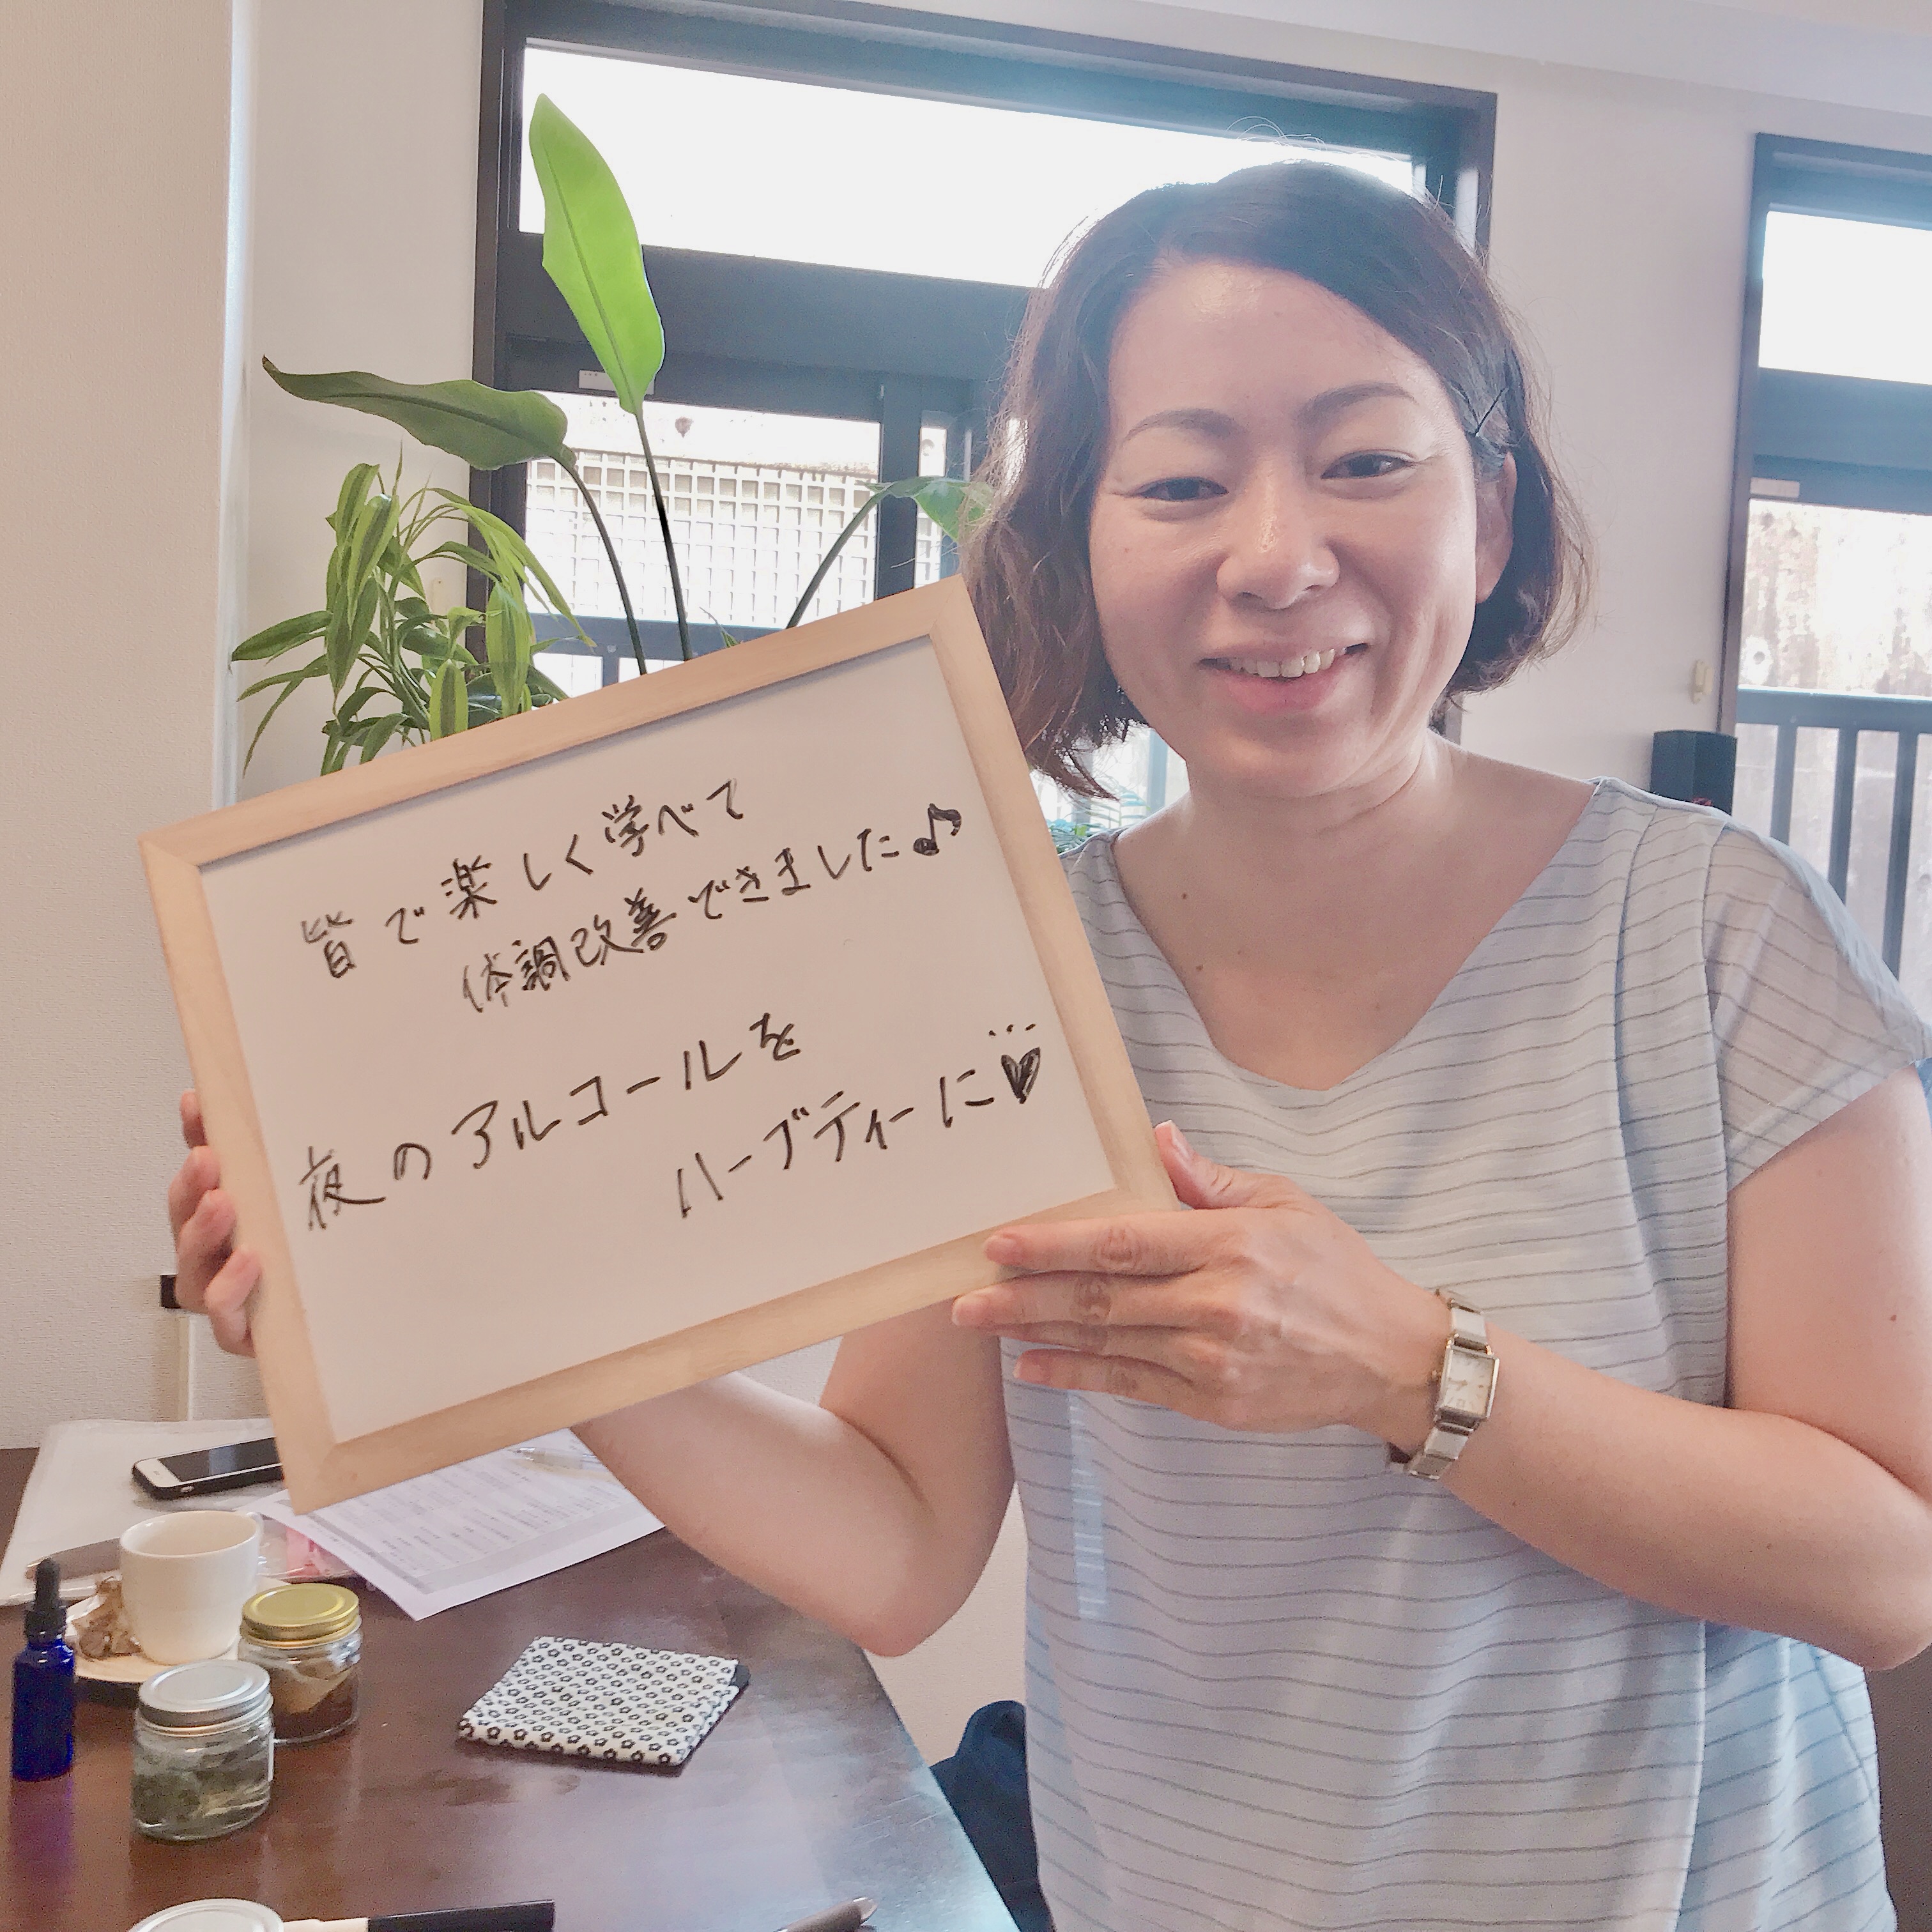 皆で楽しく学べて
体調改善できました♪
夜のアルコールを
ハーブティーに♥